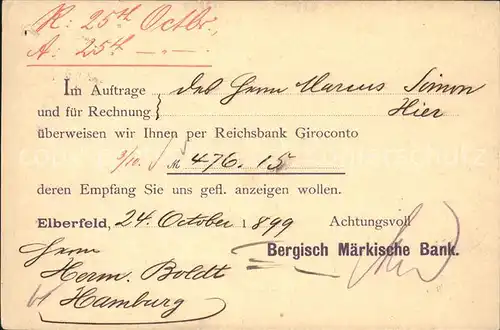 R: 25th Octbr.,
A: 25th — " —
Im Auftrage des Herrn Marcus Simon
und für Rechnung Hier
überweisen wir Ihnen per Reichsbank Giroconto
9/10. M 476.15
deren Empfang Sie uns gefl. anzeigen wollen.
Elberfeld, 24. October 1899 Achtungsvoll
Bergisch Märkische Bank.
Herrn
Herm. Boldt
Hamburg